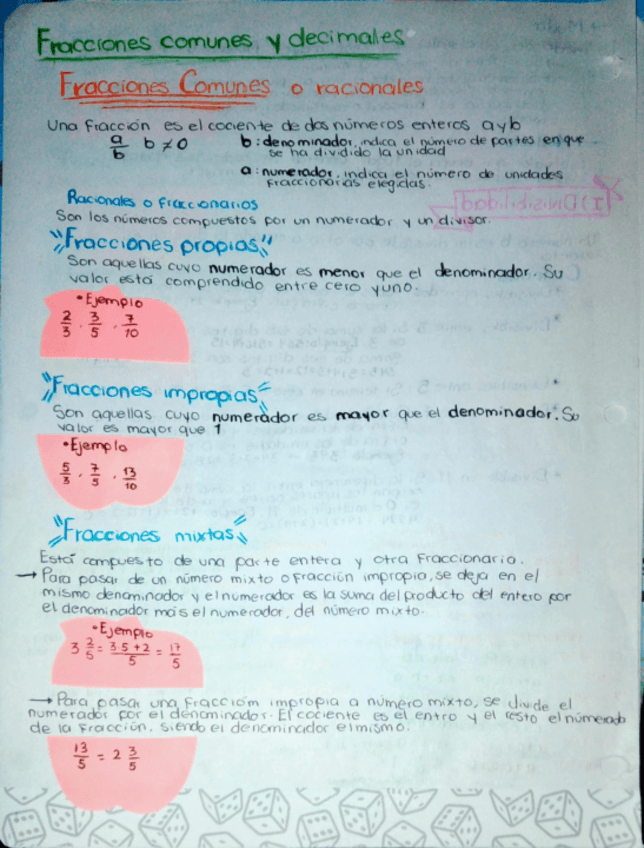 Fracciones comunes y decimales
Fracciones Comunes o racionales
Una fracción es el cociente de dos números enteros a y b
a/b b ≠ 0
b: denominador, indica el número de partes en que
se ha dividido la unidad
a: numerador, indica el número de unidades
fraccionarias elegidas.
Racionales o fraccionarios
Son los números compuestos por un numerador y un divisor.
Fracciones propias
Son aquellas cuyo numerador es menor que el denominador. Su
valor está comprendido entre cero y uno.
• Ejemplo
2/3 . 3/5 . 7/10
Fracciones impropias
Son aquellas cuyo numerador es mayor que el denominador. Su
valor es mayor que 1
• Ejemplo
5/3 . 7/5 . 13/10
Fracciones mixtas
Está compuesto de una parte entera y otra fraccionaria.
→ Para pasar de un número mixto o fracción impropio, se deja en el
mismo denominador y el numerador es la suma del producto del entero por
el denominador más el numerador, del número mixto.
• Ejemplo
3 2/5 = 3·5+2/5 = 17/5
→ Para pasar una fracción impropia a número mixto, se divide el
numerador por el denominador. El cociente es el entro y el resto el numerado
de la fracción, siendo el denominador el mismo.
13/5 = 2 3/5